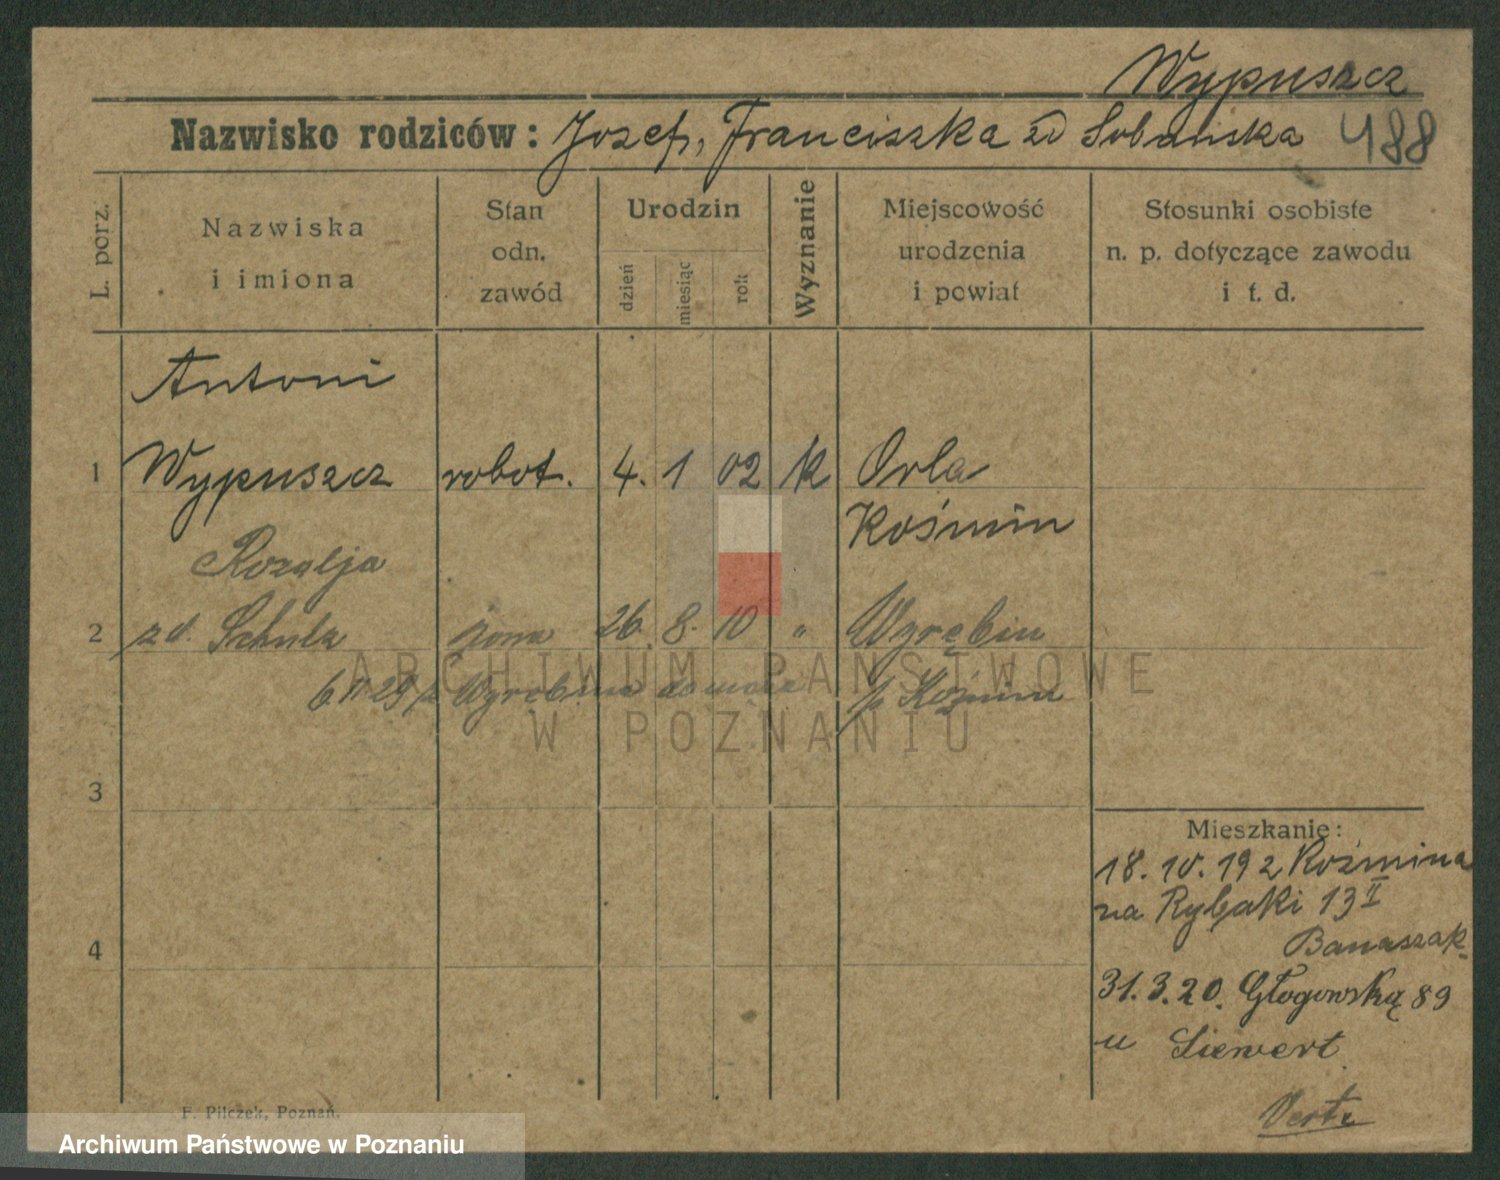 Wypuszcz
Nazwisko rodziców: Jozef, Franciszka zd Sobańska 488
L. porz.
Nazwiska
i imiona
Stan
odn.
zawód
Urodzin
dzień
miesiąc
rok
Wyznanie
Miejscowość
urodzenia
i powiat
Stosunki osobiste
n. p. dotyczące zawodu
i t. d.
Antoni
1 Wypuszcz robot. 4. 1 02 k Orla
Kośmin
Rozalja
2 zd. Schulz żona 26. 8. 10 " Wgrębin
29 z p. Koźmin
ARCHIWUM PAŃSTWOWE
W POZNANIU
3
4
Mieszkanie:
18. 10. 19 z Koźmina
na Rybaki 13 II
Banaszak
31. 3. 20. Głogowską 89
u Siewert
Verte
F. Pilczek, Poznań.
Archiwum Państwowe w Poznaniu